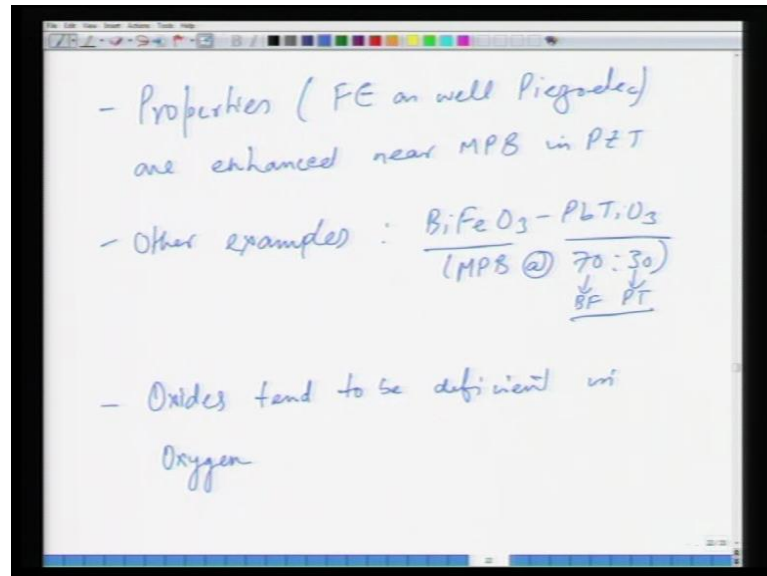 File Edit View Insert Actions Tools Help
- Properties ( FE as well Piezoelec)
are enhanced near MPB in PZT
- Other examples : BiFeO3 - PbTiO3
(MPB @ 70 : 30)
BF PT
- Oxides tend to be deficient in
Oxygen